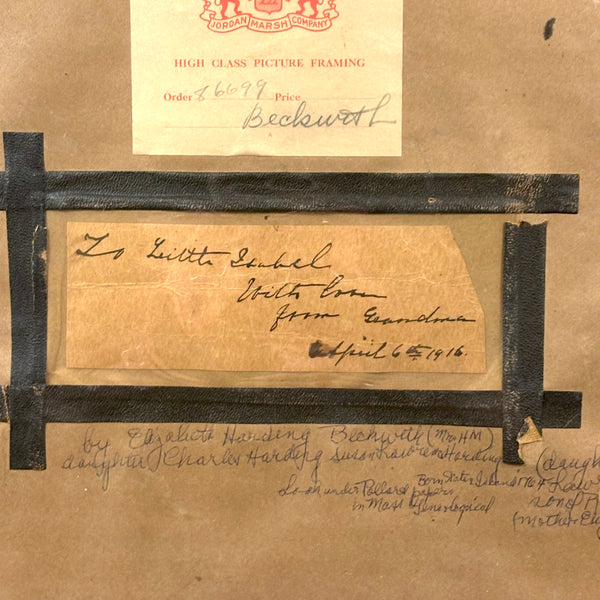 JORDAN MARSH COMPANY
HIGH CLASS PICTURE FRAMING
Order 86699 Price
Beckwith
To Little Isabel
With Love
from Grandma
April 6th 1916.
by Elizabeth Harding Beckwith (Mrs HM)
daughter Charles Harding Susan Harding (daugh
Born Staten Island 1764
Look under Pollard papers
in Mass Genealogical
son of
(mother